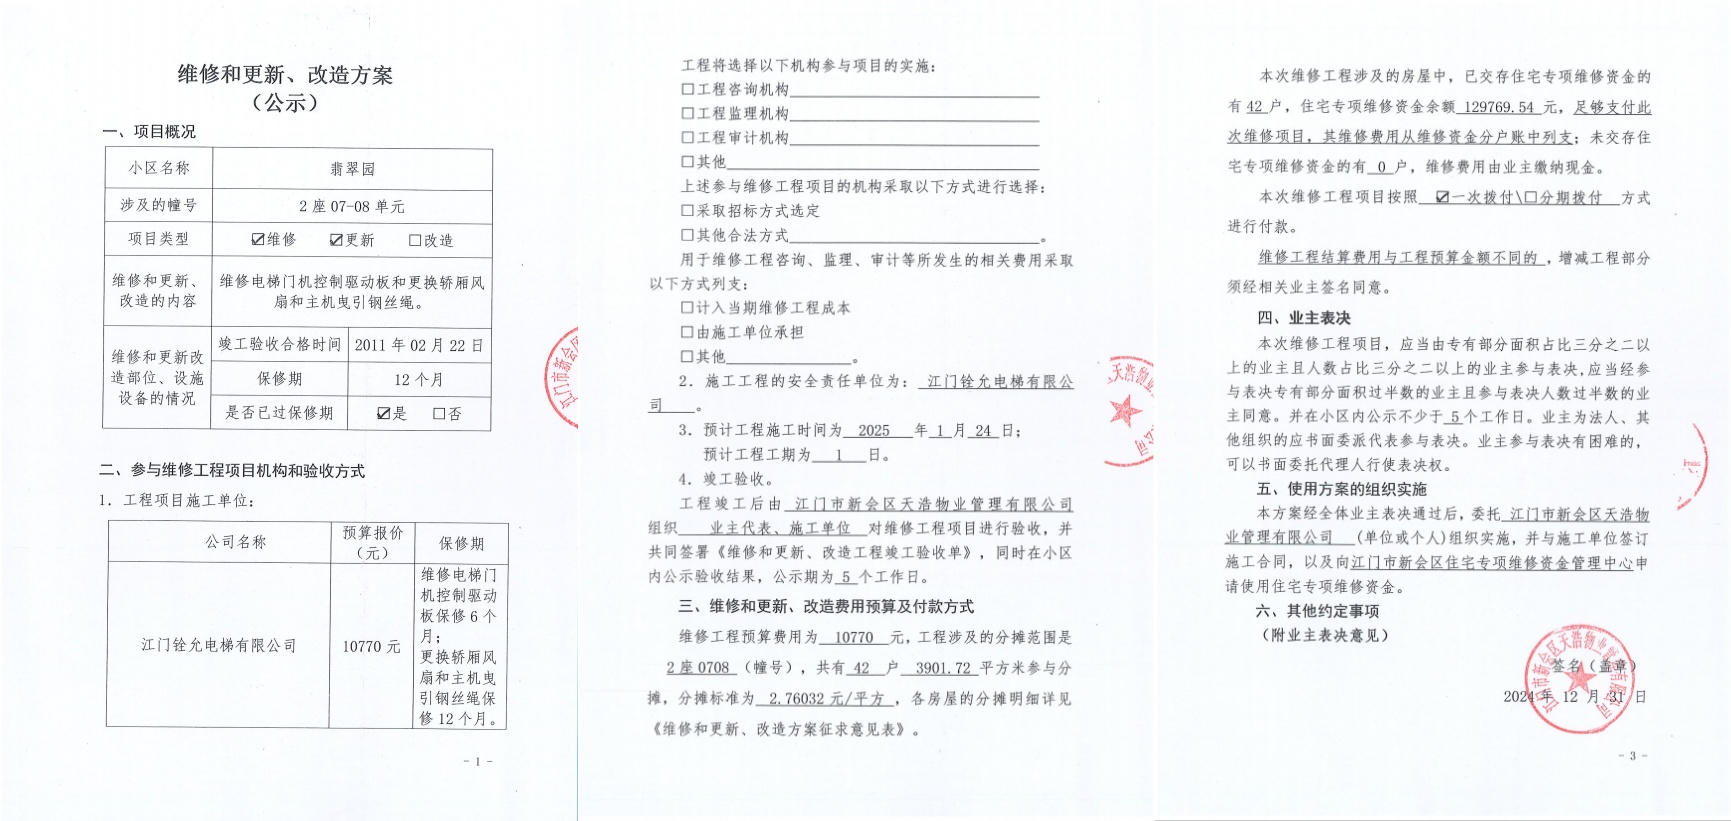 维修和更新、改造方案
（公示）
一、项目概况
小区名称 翡翠园
涉及的幢号 2座07-08单元
项目类型 ☑维修 ☑更新 □改造
维修和更新、改造的内容 维修电梯门机控制驱动板和更换轿厢风扇和主机曳引钢丝绳。
维修和更新改造部位、设施设备的情况 竣工验收合格时间 2011年02月22日
保修期 12个月
是否已过保修期 ☑是 □否
二、参与维修工程项目机构和验收方式
1. 工程项目施工单位：
公司名称 预算报价（元） 保修期
江门铨允电梯有限公司 10770元 维修电梯门机控制驱动板保修6个月；更换轿厢风扇和主机曳引钢丝绳保修12个月。
- 1 -
工程将选择以下机构参与项目的实施：
□工程咨询机构
□工程监理机构
□工程审计机构
□其他
上述参与维修工程项目的机构采取以下方式进行选择：
□采取招标方式选定
□其他合法方式。
用于维修工程咨询、监理、审计等所发生的相关费用采取
以下方式列支：
□计入当期维修工程成本
□由施工单位承担
□其他。
2. 施工工程的安全责任单位为： 江门铨允电梯有限公
司 。
3. 预计工程施工时间为 2025 年 1 月 24 日；
预计工程工期为 1 日。
4. 竣工验收。
工程竣工后由 江门市新会区天浩物业管理有限公司
组织 业主代表、施工单位 对维修工程项目进行验收，并
共同签署《维修和更新、改造工程竣工验收单》，同时在小区
内公示验收结果，公示期为 5 个工作日。
三、维修和更新、改造费用预算及付款方式
维修工程预算费用为 10770 元，工程涉及的分摊范围是
2座0708 （幢号），共有 42 户 3901.72 平方米参与分
摊，分摊标准为 2.76032元/平方 ，各房屋的分摊明细详见
《维修和更新、改造方案征求意见表》。
本次维修工程涉及的房屋中，已交存住宅专项维修资金的
有 42 户，住宅专项维修资金余额 129769.54 元，足够支付此
次维修项目，其维修费用从维修资金分户账中列支；未交存住
宅专项维修资金的有 0 户，维修费用由业主缴纳现金。
本次维修工程项目按照 ☑一次拨付\□分期拨付 方式
进行付款。
维修工程结算费用与工程预算金额不同的，增减工程部分
须经相关业主签名同意。
四、业主表决
本次维修工程项目，应当由专有部分面积占比三分之二以
上的业主且人数占比三分之二以上的业主参与表决，应当经参
与表决专有部分面积过半数的业主且参与表决人数过半数的业
主同意。并在小区内公示不少于 5 个工作日。业主为法人、其
他组织的应书面委派代表参与表决。业主参与表决有困难的，
可以书面委托代理人行使表决权。
五、使用方案的组织实施
本方案经全体业主表决通过后，委托 江门市新会区天浩物
业管理有限公司 (单位或个人)组织实施，并与施工单位签订
施工合同，以及向江门市新会区住宅专项维修资金管理中心申
请使用住宅专项维修资金。
六、其他约定事项
（附业主表决意见）
签名（盖章）
2024年 12 月 31 日
江门市新会区天浩物业管理有限公司
- 3 -